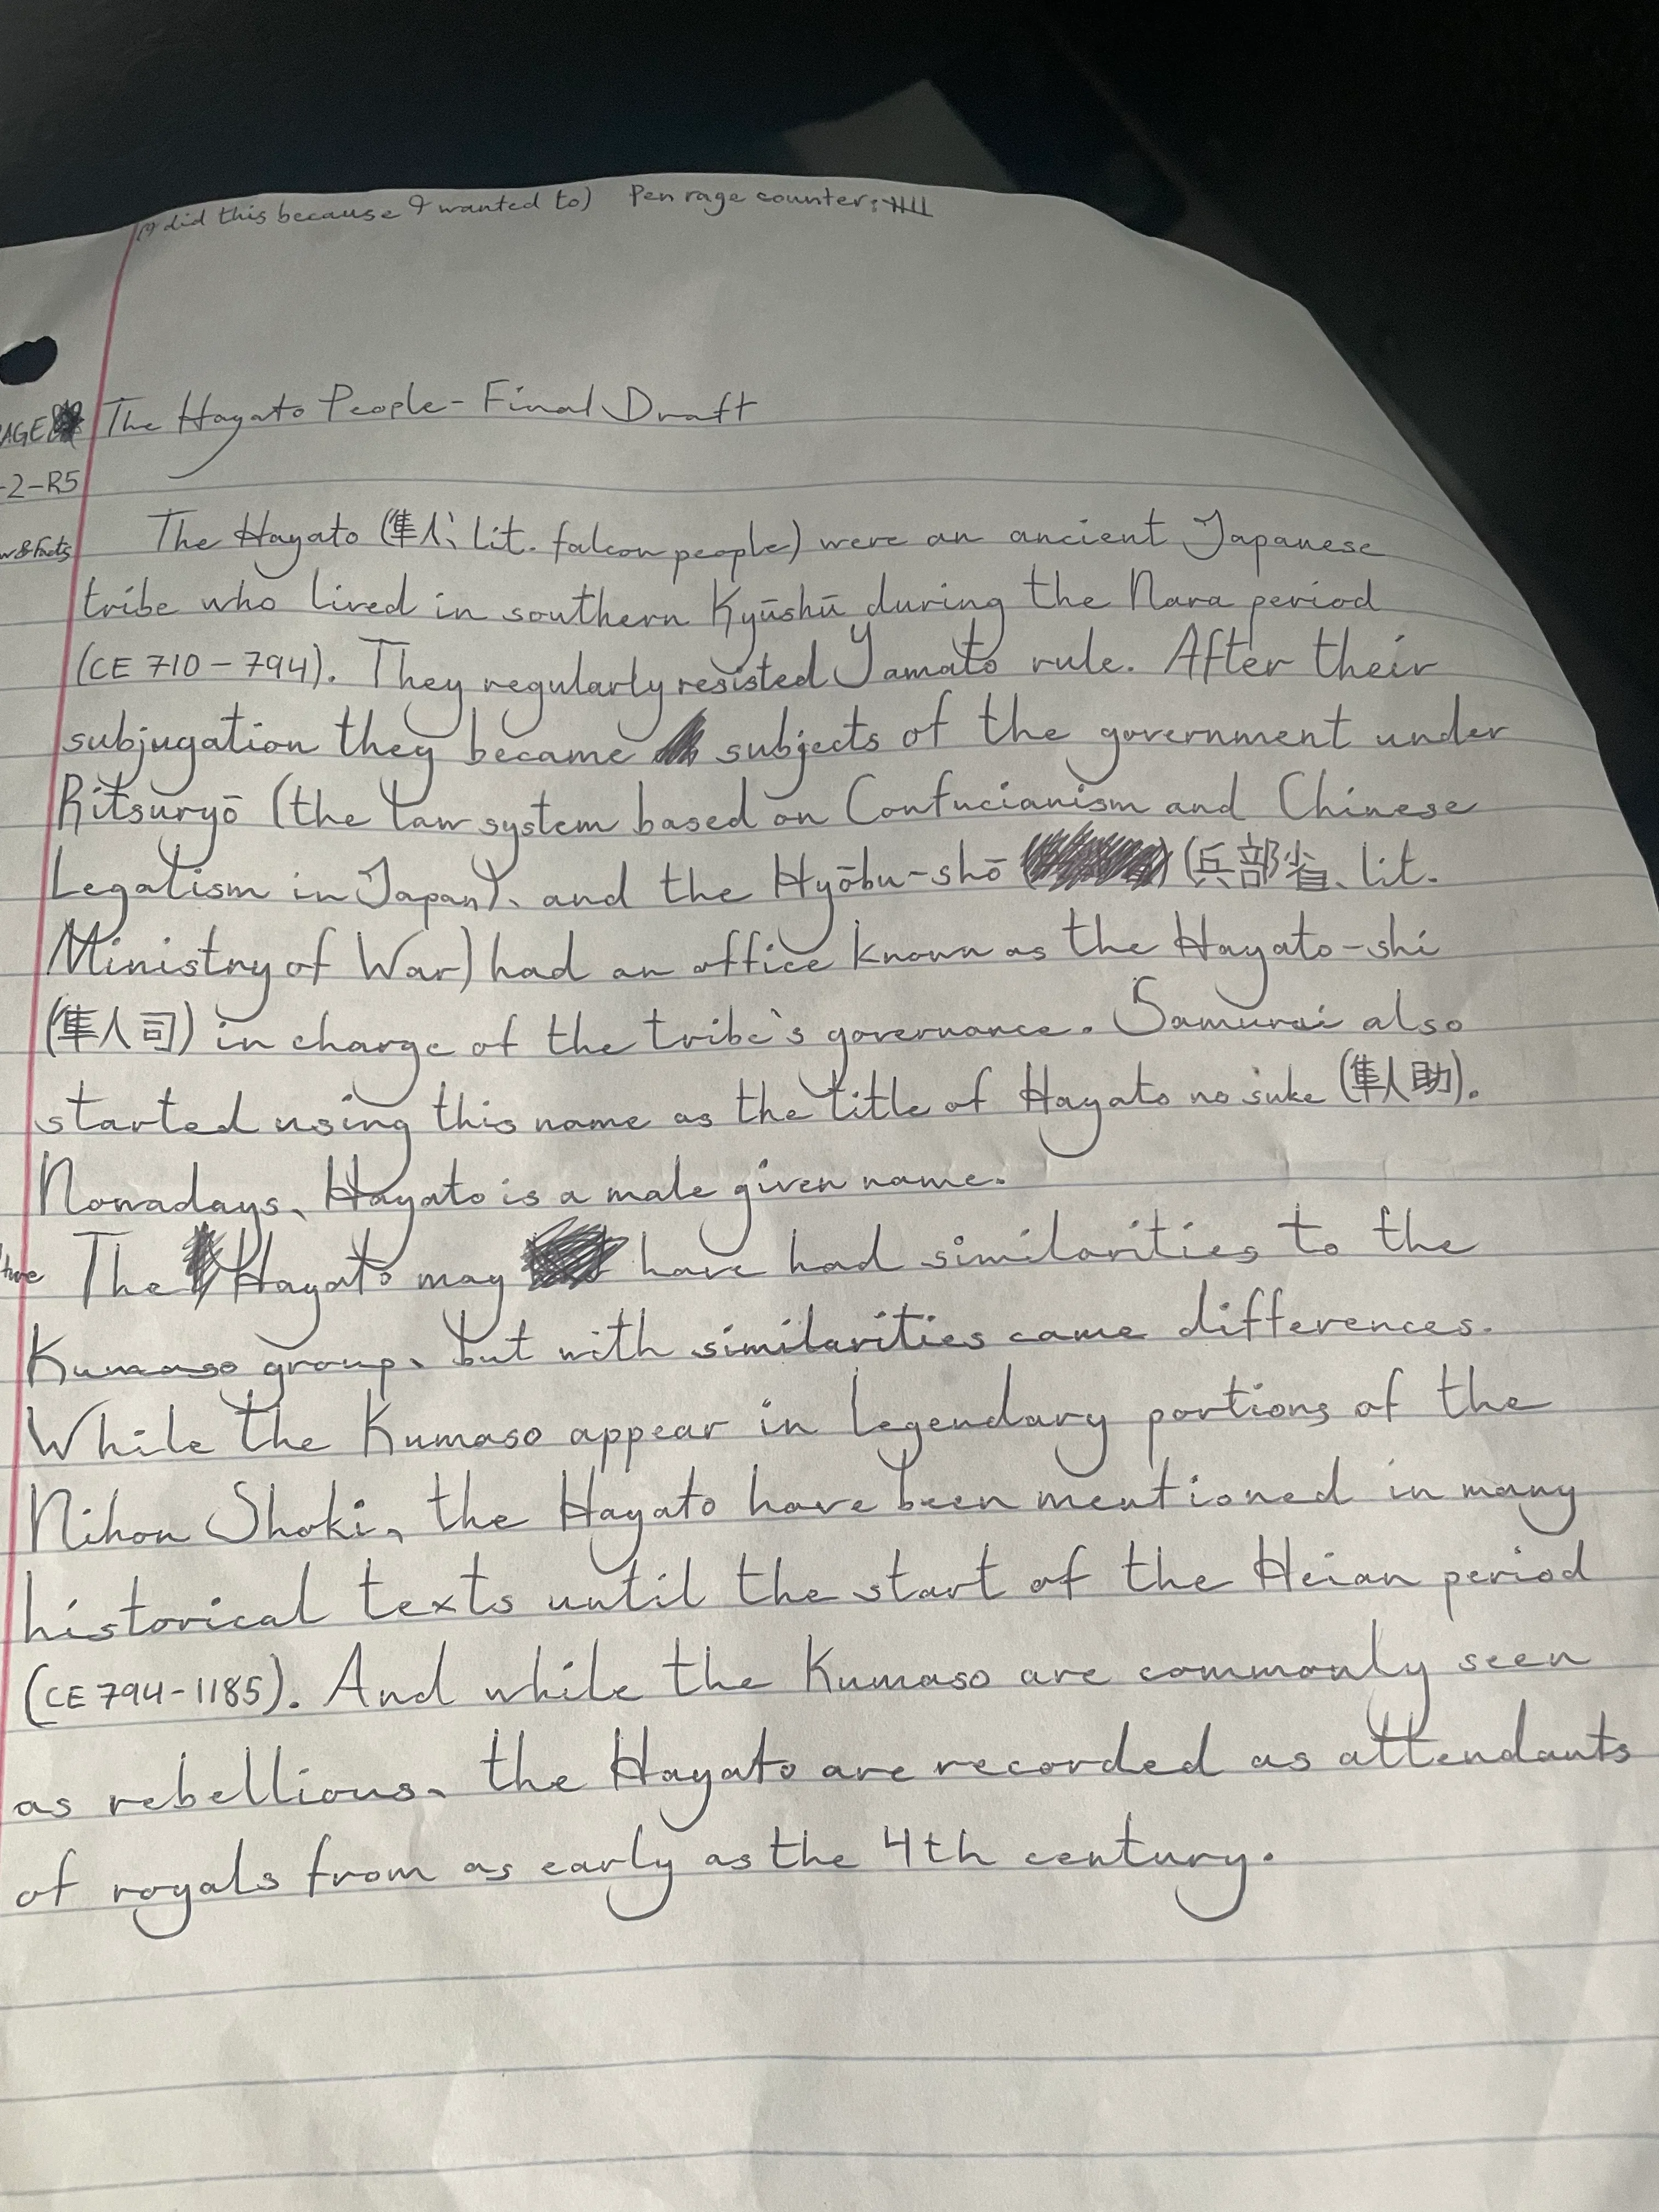 (I did this because I wanted to) Pen rage counter:
The Hayato People - Final Draft
-2-R5
The Hayato (隼人、lit. falcon people) were an ancient Japanese
tribe who lived in southern Kyūshū during the Nara period
(CE 710-794). They regularly resisted Yamato rule. After their
subjugation they became subjects of the government under
Ritsuryō (the law system based on Confucianism and Chinese
Legalism in Japan)、and the Hyōbu-shō (兵部省、lit.
Ministry of War) had an office known as the Hayato-shi
(隼人司) in charge of the tribe's governance. Samurai also
started using this name as the title of Hayato no suke (隼人助).
Nowadays、Hayato is a male given name.
The Hayato may have had similarities to the
Kumaso group、but with similarities came differences.
While the Kumaso appear in legendary portions of the
Nihon Shoki、the Hayato have been mentioned in many
historical texts until the start of the Heian period
(CE 794-1185). And while the Kumaso are commonly seen
as rebellious、the Hayato are recorded as attendants
of royals from as early as the 4th century.